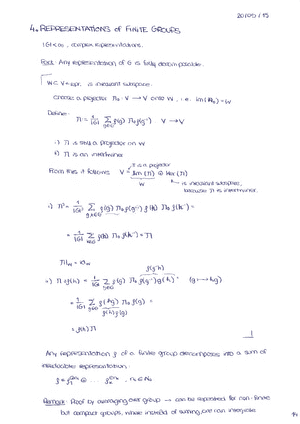 20/05/15
4. REPRESENTATIONS of FINITE GROUPS
|G|<∞, complex representations.
Fact: Any representation of G is fully decomposable.
W ⊂ V = repr. is invariant subspace.
Choose a projector Π₀ : V → V onto W, i.e. im(Π₀) = W
Define:
Π := 1/|G| Σ_{g∈G} ρ(g) Π₀ ρ(g⁻¹) V → V
i) Π is still a projector on W
ii) Π is an intertwiner
Π is a projector
From this it follows V = Im(Π) ⊕ Ker(Π)
W is invariant subspace,
because Π is intertwiner.
i) Π² = 1/|G|² Σ_{g,h∈G} ρ(g) Π₀ ρ(g⁻¹) ρ(h) Π₀ ρ(h⁻¹) =
= 1/|G| Σ_{h∈G} ρ(h) Π₀ ρ(h⁻¹) = Π
Π|_W = id_W
ρ(g⁻¹h)
ii) Π ρ(h) = 1/|G| Σ_{g∈G} ρ(g) Π₀ ρ(g⁻¹) ρ(h) = (g → hg)
= 1/|G| Σ_{g∈G} ρ(hg) Π₀ ρ(g⁻¹) =
ρ(h)ρ(g)
= ρ(h) Π
Any representation ρ of a finite group decomposes into a sum of
irreducible representation:
Remark: Proof by averaging over group → can be repeated for non-finite
but compact groups, where instead of summing, one can integrate